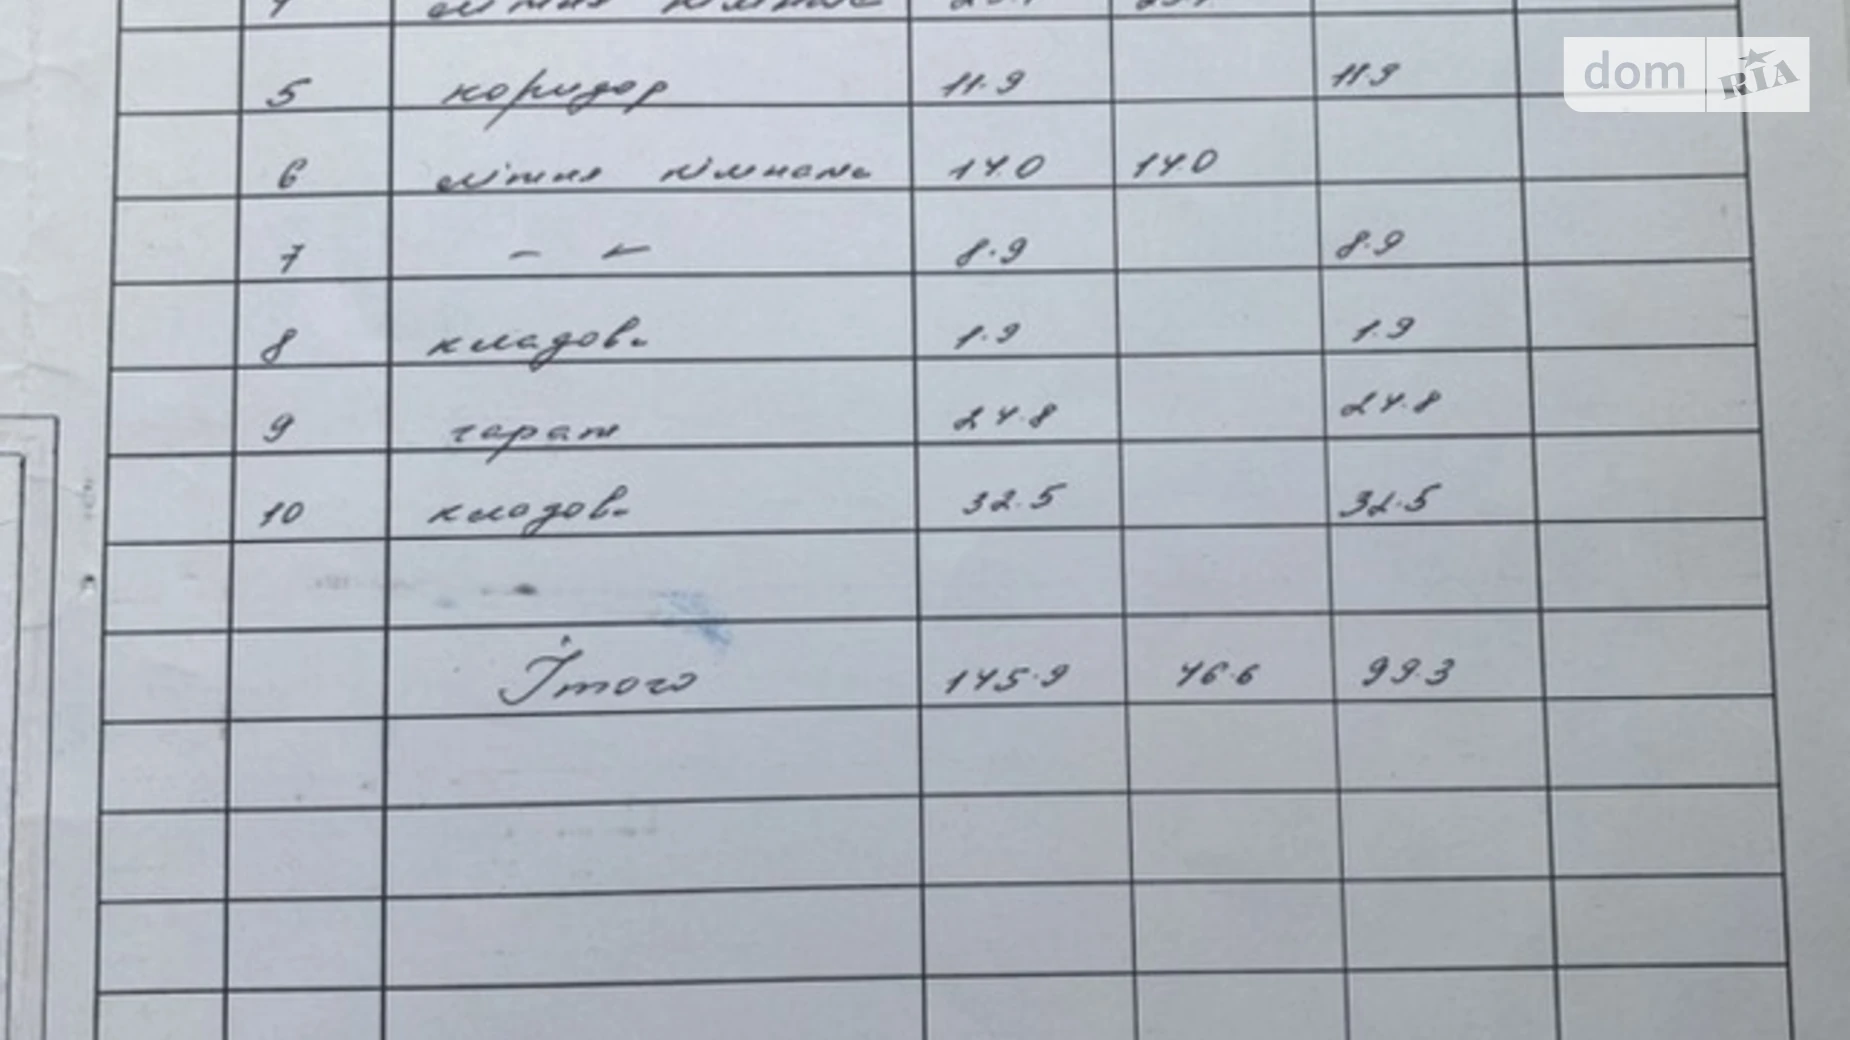 dom RIA
5 коридор 11.9 11.9
6 літня кімната 14.0 14.0
7 — — 8.9 8.9
8 кладов. 1.9 1.9
9 гараж 24.8 24.8
10 кладов. 32.5 32.5
Ітого 145.9 46.6 99.3